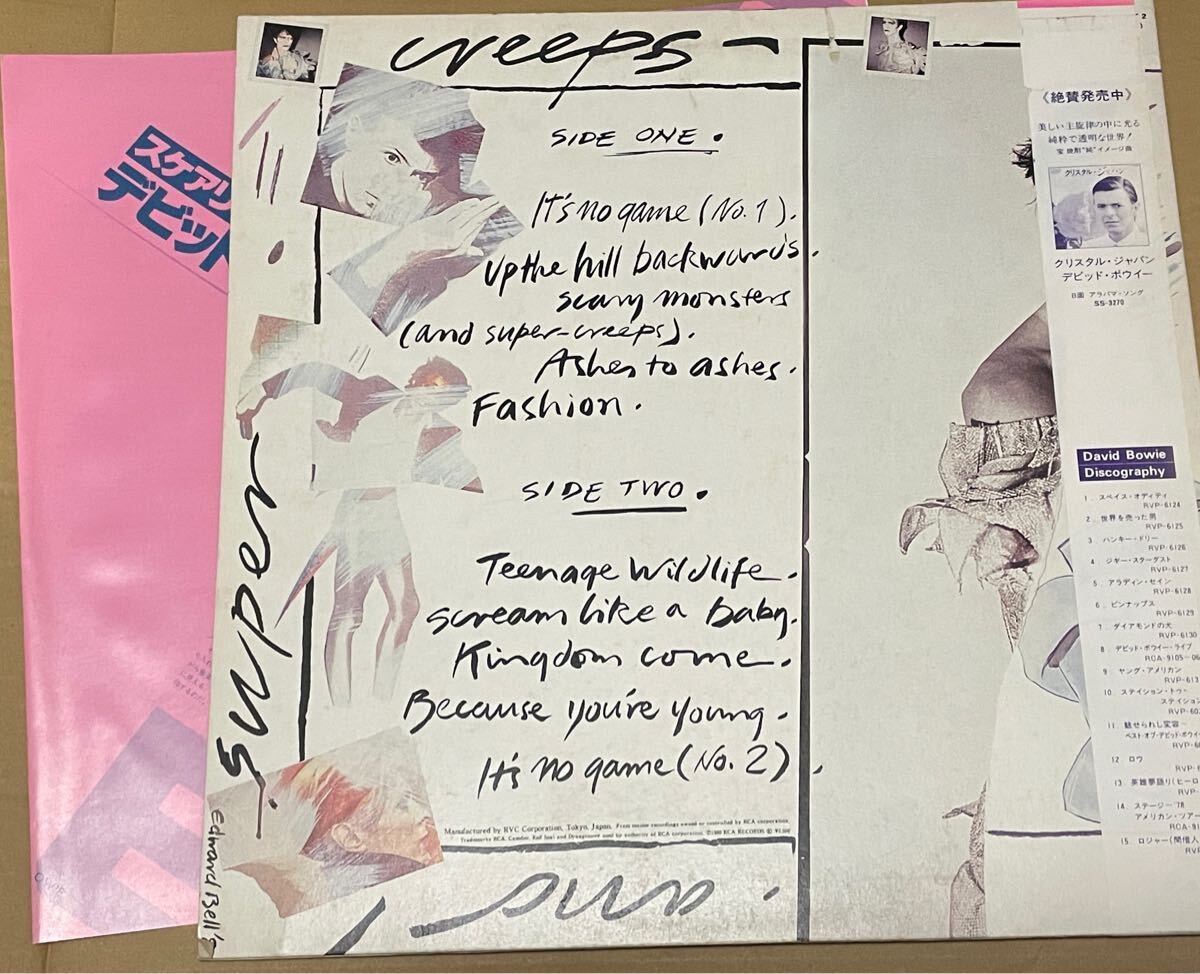 creeps —
SIDE ONE.
It's no game (No. 1).
Up the hill backwards.
scary monsters
(and super-creeps).
Ashes to ashes.
Fashion.
SIDE TWO.
Teenage wildlife.
scream like a baby.
Kingdom come.
Because you're young.
It's no game (No. 2).
Manufactured by RVC Corporation, Tokyo, Japan. From master recordings owned or controlled by RCA corporation.
Trademarks RCA, Camden, Red Seal and Dynagroove used by authority of RCA corporation. ©1980 RCA RECORDS
super
and
Edward Bell's
スケアリ
デビット
《絶賛発売中》
美しい主旋律の中に光る
純粋で透明な世界!
宝焼酎"純"イメージ曲
クリスタル・ジャパン
クリスタル・ジャパン
デビッド・ボウイー
B面 アラバマ・ソング
SS-3270
David Bowie
Discography
1. スペイス・オディティ
RVP-6124
2. 世界を売った男
RVP-6125
3. ハンキー・ドリー
RVP-6126
4. ジギー・スターダスト
RVP-6127
5. アラディン・セイン
RVP-6128
6. ピンナップス
RVP-6129
7. ダイアモンドの犬
RVP-6130
8. デビッド・ボウイー・ライブ
RCA-9105~06
9. ヤング・アメリカン
RVP-613
10. ステイション・トゥ・
ステイション
RVP-60
11. 魅せられし変容~
ベスト・オブ・デビッド・ボウイ
RVP-6
12. ロウ
RVP-6
13. 英雄夢語り(ヒーロ
RVP-
14. ステージ~'78
アメリカン・ツアー
RCA-91
15. ロジャー(間借人
RVP